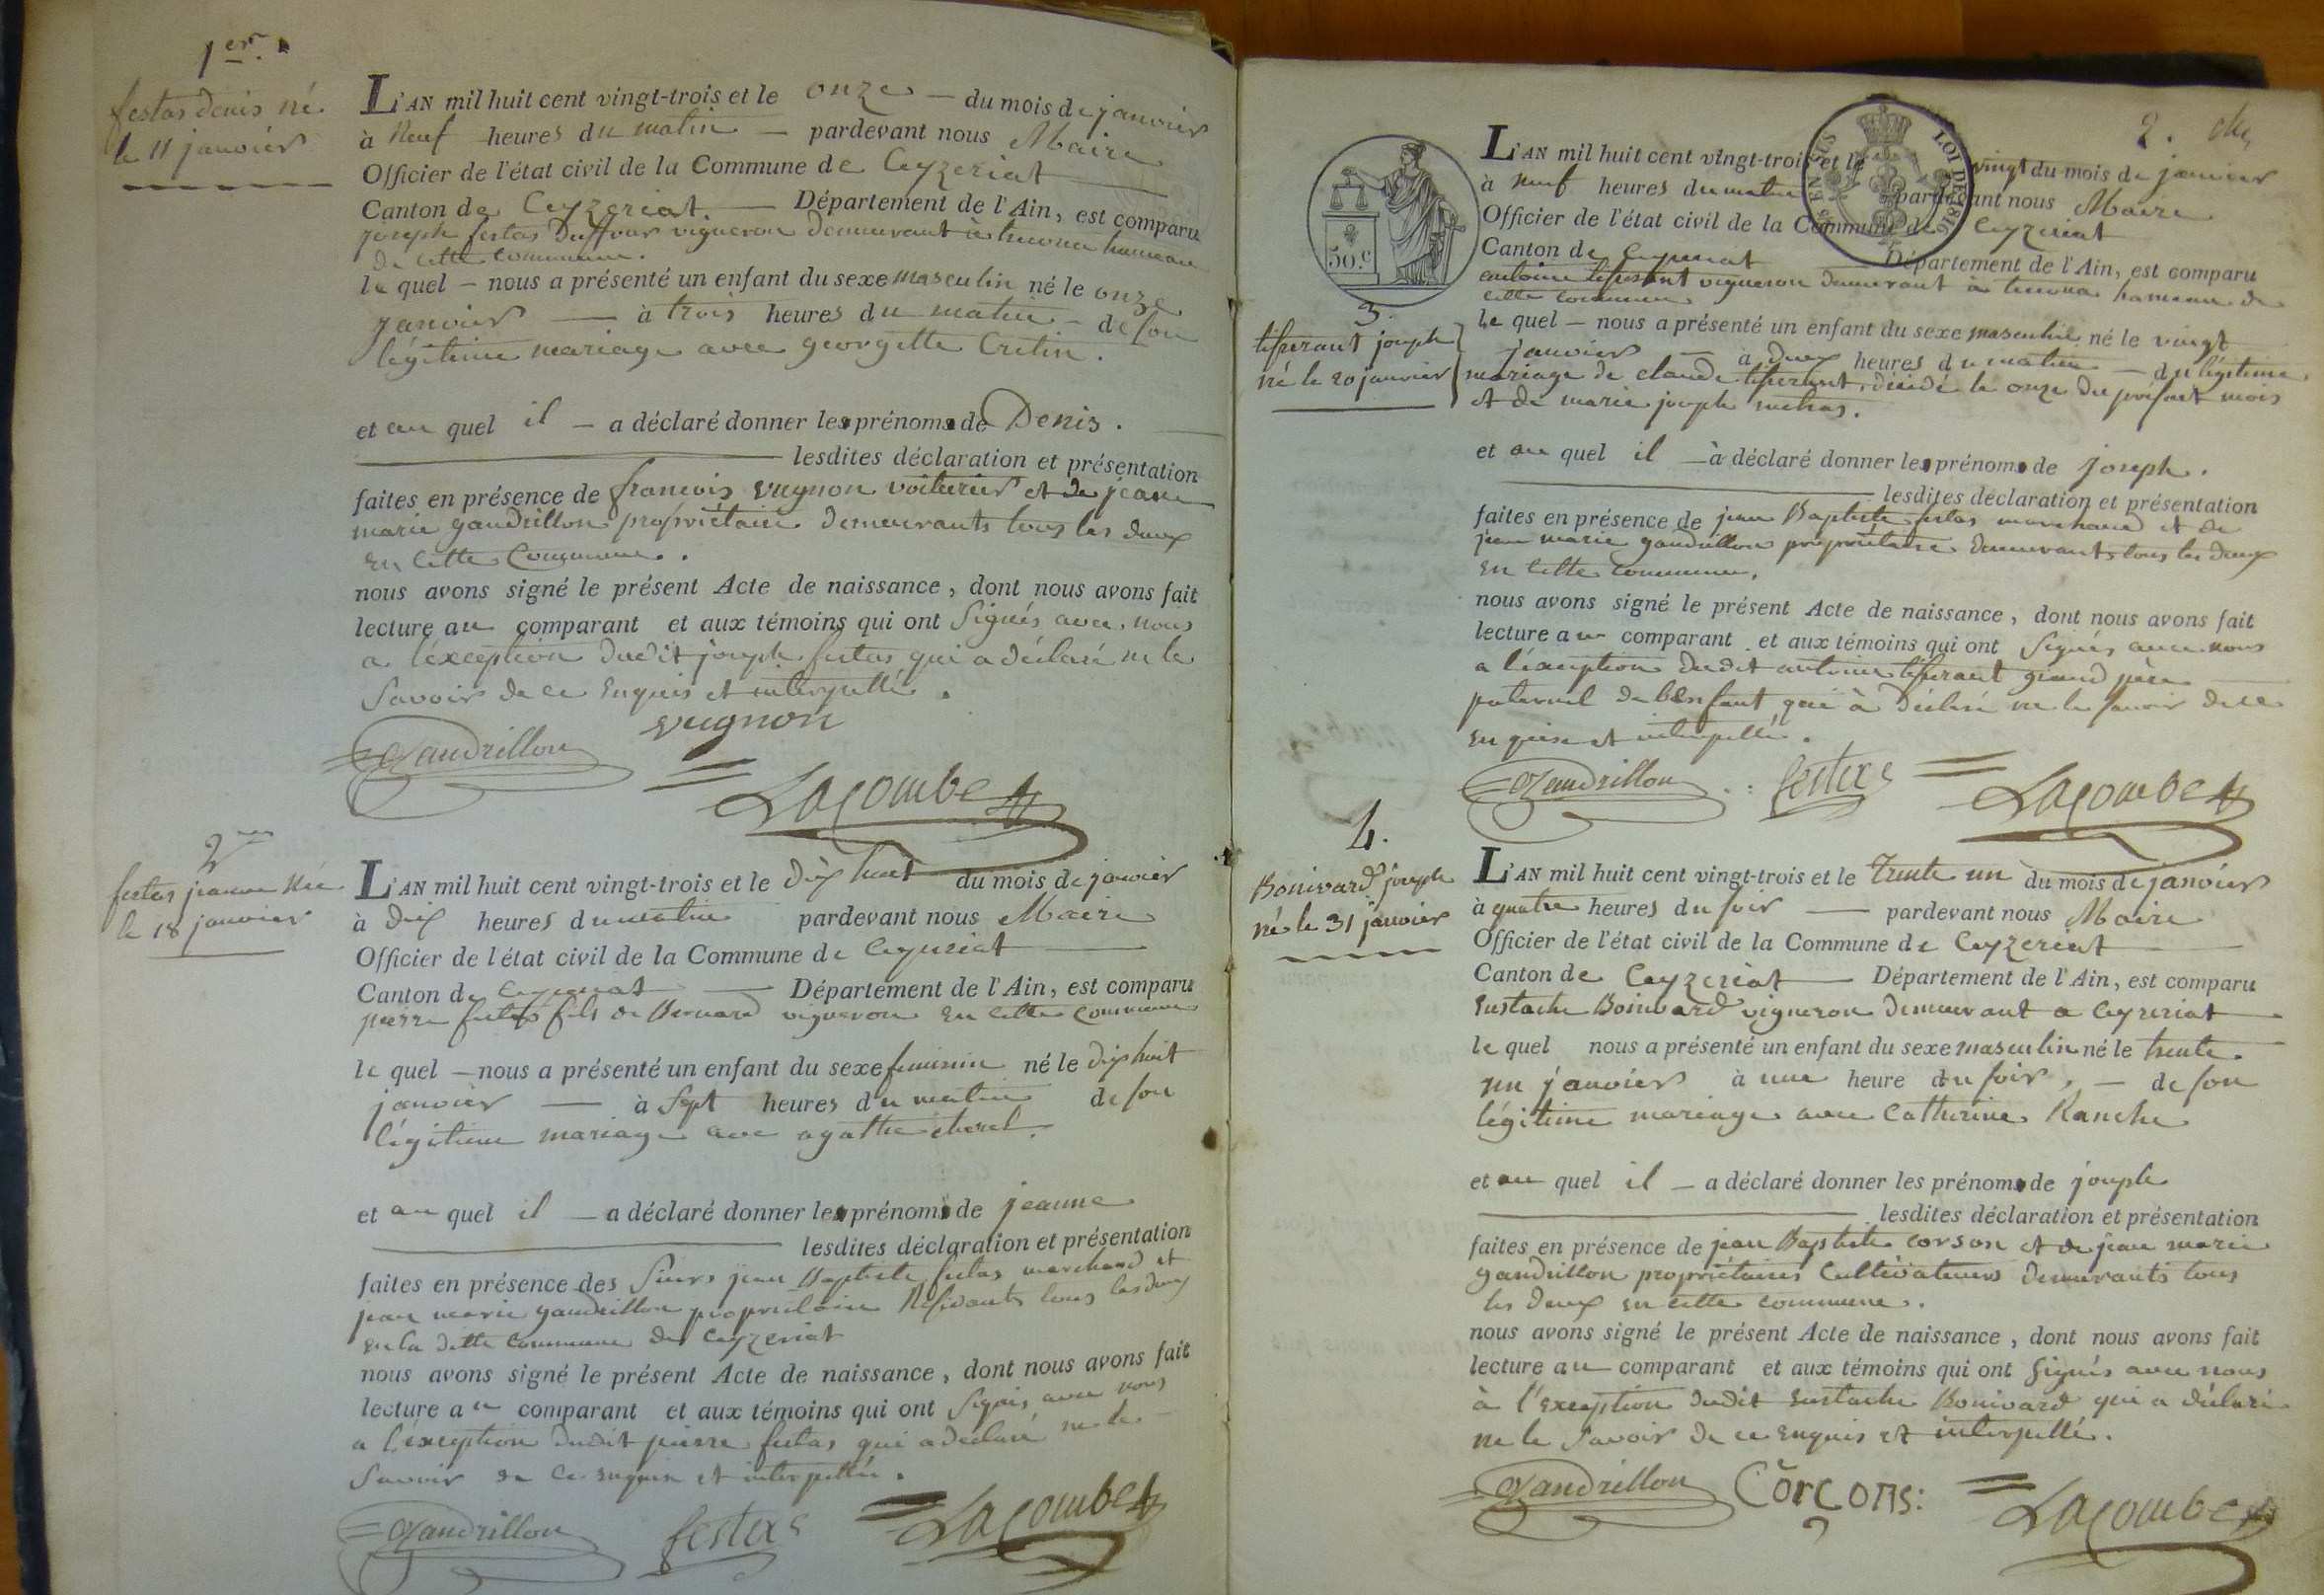 1er.
festas denis né
le 11 janvier
L'AN mil huit cent vingt-trois et le onze — du mois de janvier
à Neuf heures du matin — pardevant nous Maire
Officier de l'état civil de la Commune de Ceyzeriat
Canton de Ceyzeriat. — Département de l'Ain, est comparu
joseph festas Duffour vigneron demeurant à hameau
de cette commune.
le quel — nous a présenté un enfant du sexe masculin né le onze
janvier — à trois heures du matin — de son
légitime mariage avec georgette Cretin.
et au quel il — a déclaré donner les prénoms de Denis.
lesdites déclaration et présentation
faites en présence de francois vugnon voiturier et de jean
marie gandrillon propriétaire demeurants tous les deux
en cette Commune.
nous avons signé le présent Acte de naissance, dont nous avons fait
lecture au comparant et aux témoins qui ont signés avec nous
a l'exception dudit joseph festas qui a déclaré ne le
savoir de ce enquis et interpellé.
Gandrillon vugnon
Lacombe
2me
festas jeanne née
le 18 janvier
L'AN mil huit cent vingt-trois et le dix huit du mois de janvier
à dix heures du matin pardevant nous Maire
Officier de l'état civil de la Commune de Ceyzeriat
Canton de Ceyzeriat — Département de l'Ain, est comparu
pierre festas fils de Bernard vigneron en cette commune
le quel — nous a présenté un enfant du sexe feminin né le dix huit
janvier — à sept heures du matin de son
légitime mariage avec agathe
et au quel il — a déclaré donner les prénoms de jeanne
lesdites déclaration et présentation
faites en présence des sieurs jean Baptiste festas marchand et
jean marie gandrillon propriétaire Residants tous les deux
en la ditte commune de ceyzeriat
nous avons signé le présent Acte de naissance, dont nous avons fait
lecture au comparant et aux témoins qui ont signés avec nous
a l'exception dudit pierre festas qui a declaré ne le
savoir de ce enquis et interpellé.
Gandrillon festas Lacombe
2.
50.c
L'AN mil huit cent vingt-trois et le vingt du mois de janvier
à neuf heures du matin pardevant nous Maire
Officier de l'état civil de la Commune de Ceyzeriat
Canton de Ceyzeriat — Département de l'Ain, est comparu
antoine tisserant vigneron demeurant à hameau de
cette commune
3.
tisserant joseph
né le 20 janvier
le quel — nous a présenté un enfant du sexe masculin né le vingt
janvier — à deux heures du matin — du légitime
mariage de claude tisserant, décédé le onze du présent mois
et de marie joseph
et au quel il — à déclaré donner les prénoms de joseph.
lesdites déclaration et présentation
faites en présence de jean Baptiste festas marchand et de
jean marie gandrillon propriétaire demeurants tous les deux
en cette commune.
nous avons signé le présent Acte de naissance, dont nous avons fait
lecture au comparant et aux témoins qui ont signés avec nous
a l'exception dudit antoine tisserant grand père
paternel de l'enfant qui à déclaré ne le savoir de ce
enquis et interpellé.
Gandrillon festas Lacombe
4.
Bonivard joseph
né le 31 janvier
L'AN mil huit cent vingt-trois et le trente un du mois de janvier
à quatre heures du soir — pardevant nous Maire
Officier de l'état civil de la Commune de Ceyzeriat
Canton de Ceyzeriat — Département de l'Ain, est comparu
Eustache Bonivard vigneron demeurant a Ceyzeriat
le quel nous a présenté un enfant du sexe masculin né le trente
un janvier à une heure du soir, — de son
légitime mariage avec Catherine Ranche
et au quel il — a déclaré donner les prénoms de joseph
lesdites déclaration et présentation
faites en présence de jean Baptiste corson et de jean marie
gandrillon propriétaires Cultivateurs demeurants tous
les deux en cette commune.
nous avons signé le présent Acte de naissance, dont nous avons fait
lecture au comparant et aux témoins qui ont signés avec nous
à l'exception dudit Eustache Bonivard qui a déclaré
ne le savoir de ce enquis et interpellé.
Gandrillon Corçons: Lacombe